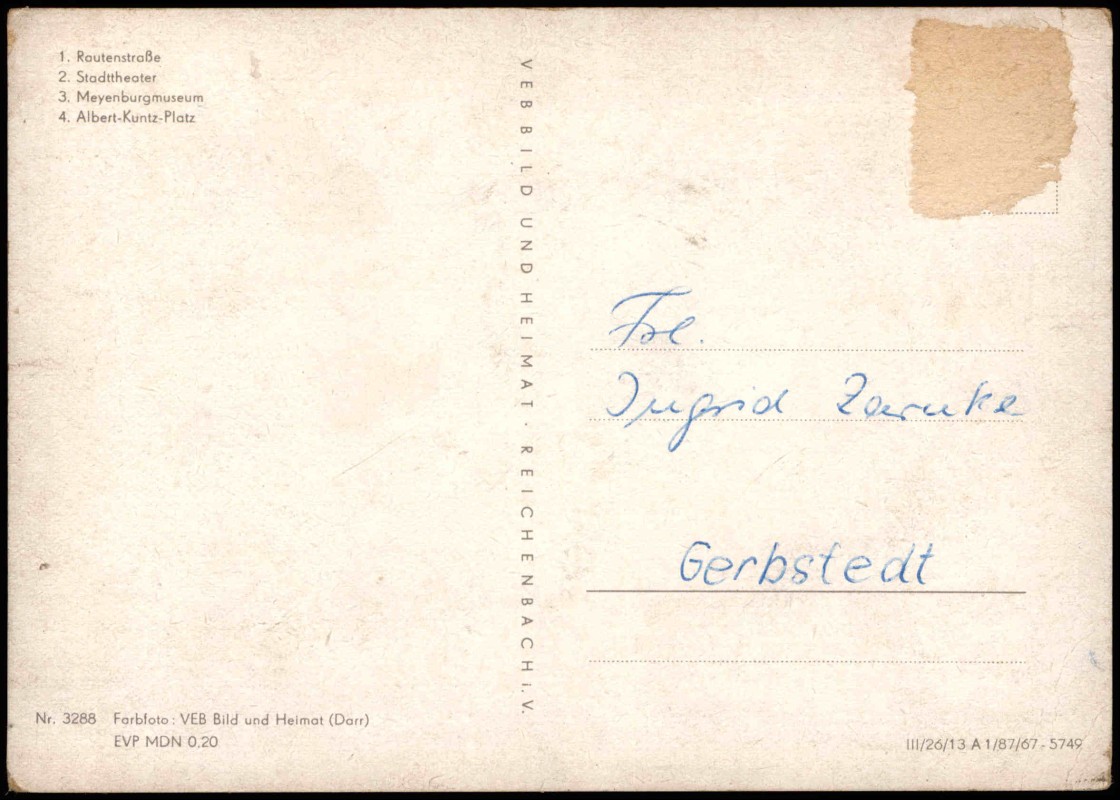 1. Rautenstraße
2. Stadttheater
3. Meyenburgmuseum
4. Albert-Kuntz-Platz
VEB BILD UND HEIMAT · REICHENBACH i. V.
Frl.
Ingrid Zarnke
Gerbstedt
Nr. 3288 Farbfoto: VEB Bild und Heimat (Darr)
EVP MDN 0,20
III/26/13 A 1/87/67 - 5749